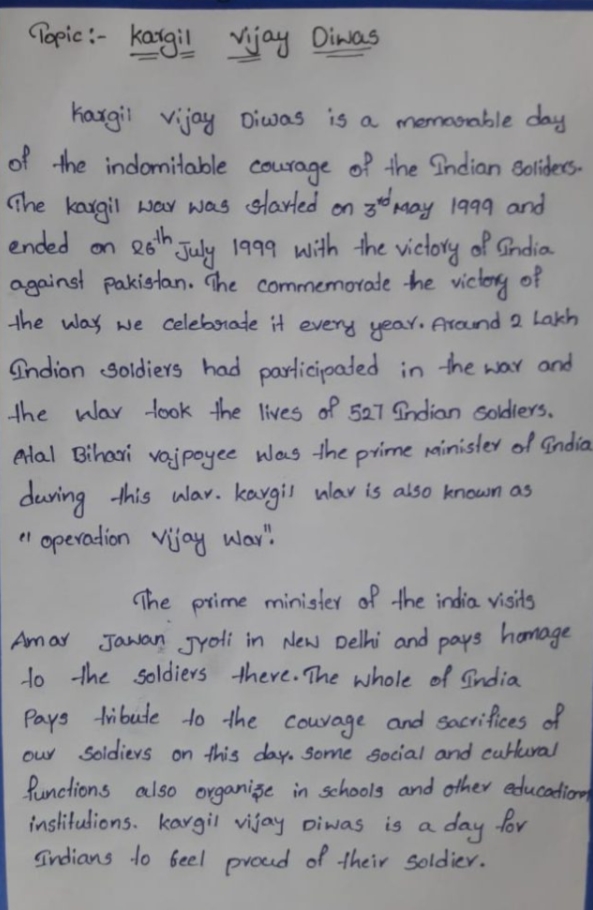 Topic :- Kargil Vijay Diwas
Kargil Vijay Diwas is a memorable day
of the indomitable courage of the Indian Soliders.
The Kargil war was started on 3rd May 1999 and
ended on 26th July 1999 with the victory of India
against pakistan. The commemorate the victory of
the war, we celebrate it every year. Around 2 Lakh
Indian soldiers had participated in the war and
the war took the lives of 527 Indian soldiers.
Atal Bihari vajpayee was the prime minister of India
during this war. kargil war is also known as
"operation Vijay War".
The prime minister of the india visits
Amar Jawan Jyoti in New Delhi and pays homage
to the soldiers there. The whole of India
Pays tribute to the courage and sacrifices of
our soldiers on this day. Some social and cultural
functions also organize in schools and other educational
institutions. Kargil vijay Diwas is a day for
Indians to feel proud of their soldier.